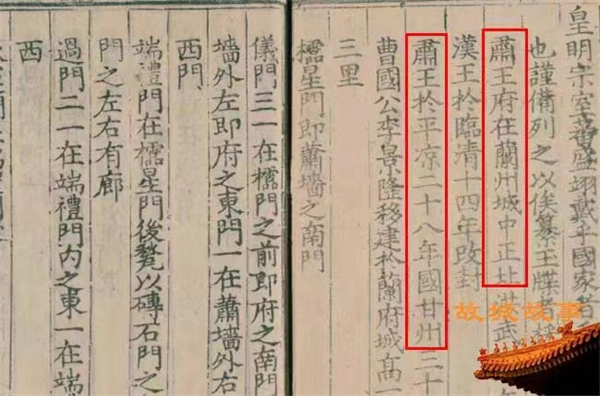 皇明宗室蕃盛翊戴乎國家者
也謹備列之以俟纂玉牒者
肅王府在蘭州城中正北洪武
漢王於臨清十四年改封
肅王於平凉二十八年國甘州三十
曹國公李景隆移建於蘭府城高一
三里
櫺星門即蕭墻之南門
儀門三一在櫺門之前即府之南門
墻外左即府之東門一在蕭墻外右
西門
端禮門在櫺星門後甃以磚石門之
門之左右有廊
過門二一在端禮門内之東一在端
西
故城故事